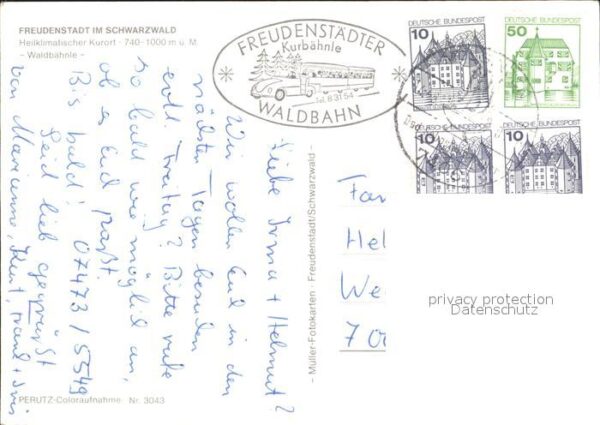 FREUDENSTADT IM SCHWARZWALD
Heilklimatischer Kurort · 740-1000 m ü. M.
- Waldbähnle -
FREUDENSTÄDTER
Kurbähnle
Tel. 8 31 54
WALDBAHN
DEUTSCHE BUNDESPOST
10
DEUTSCHE BUNDESPOST
50
DEUTSCHE BUNDESPOST
10
DEUTSCHE BUNDESPOST
10
Liebe Irma + Helmut!
Wir wollen Euch in den
nächsten Tagen besuchen
evtl. Freitag? Bitte rufe
so bald wie möglich an,
ob es Euch paßt.
Bis bald! 07473/5549
Seid lieb gegrüßt
von Marianne, Kurt,
- Müller-Fotokarten · Freudenstadt/Schwarzwald -
Fa
Hel
We
700
privacy protection
Datenschutz
PERUTZ-Coloraufnahme Nr. 3043